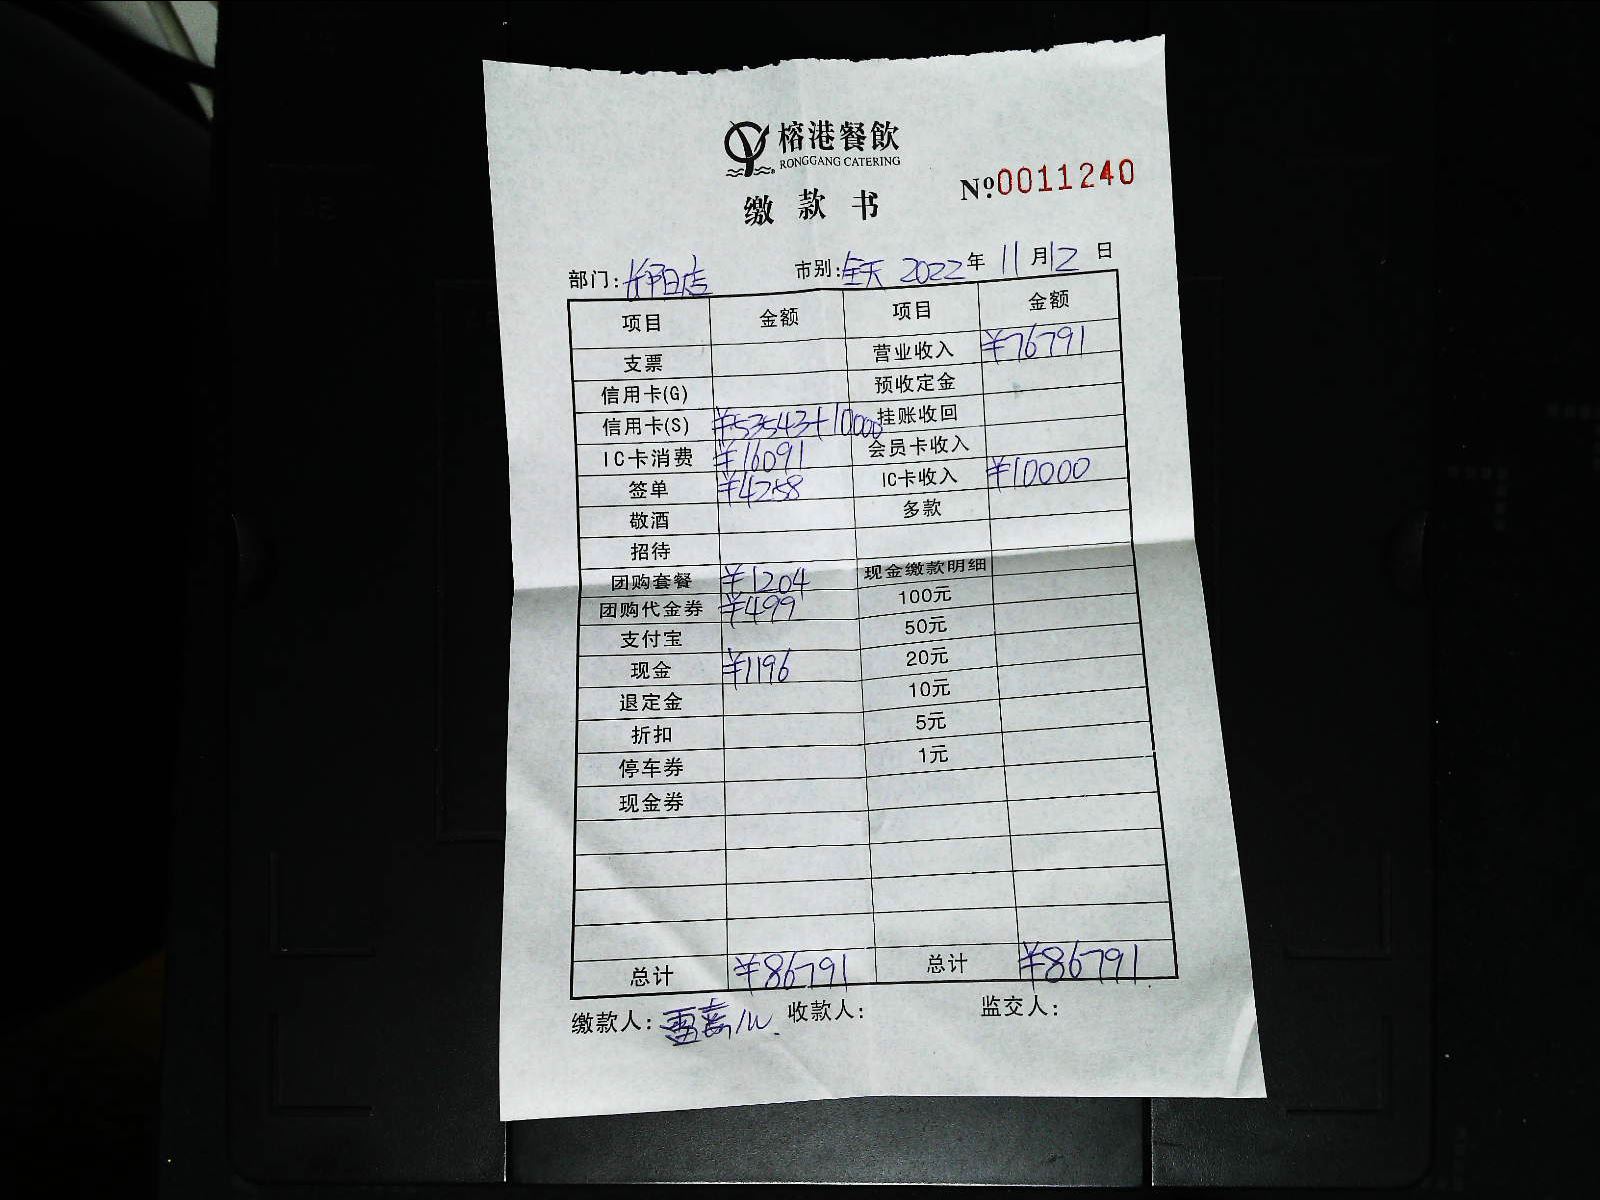 榕港餐飲
RONGGANG CATERING
缴款书
Nº0011240
部门:长阳店 市别:全天 2022年 11月12日
项目 金额 项目 金额
支票 营业收入 ¥76791
信用卡(G) 预收定金
信用卡(S) ¥53543+10000 挂账收回
IC卡消费 ¥16091 会员卡收入
签单 ¥4258 IC卡收入 ¥10000
敬酒 多款
招待
团购套餐 ¥1204 现金缴款明细
团购代金券 ¥499 100元
支付宝 50元
现金 ¥1196 20元
退定金 10元
折扣 5元
停车券 1元
现金券
总计 ¥86791 总计 ¥86791
缴款人: 收款人: 监交人: